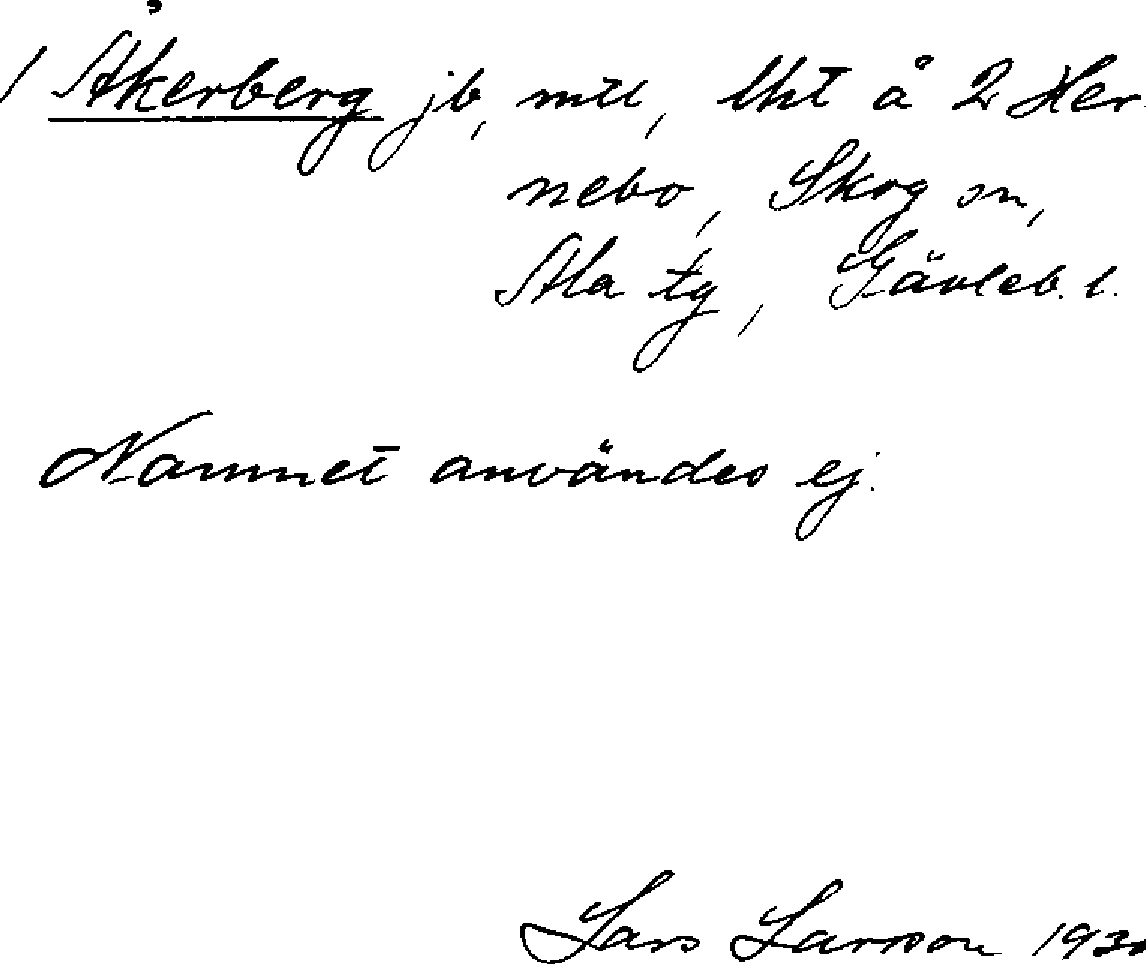 / Åkerberg jb, mtl, lht å 2 Her-
nebo, Skog sn,
Ala tg, Gävleb. l.
Namnet användes ej.
Lars Larsson